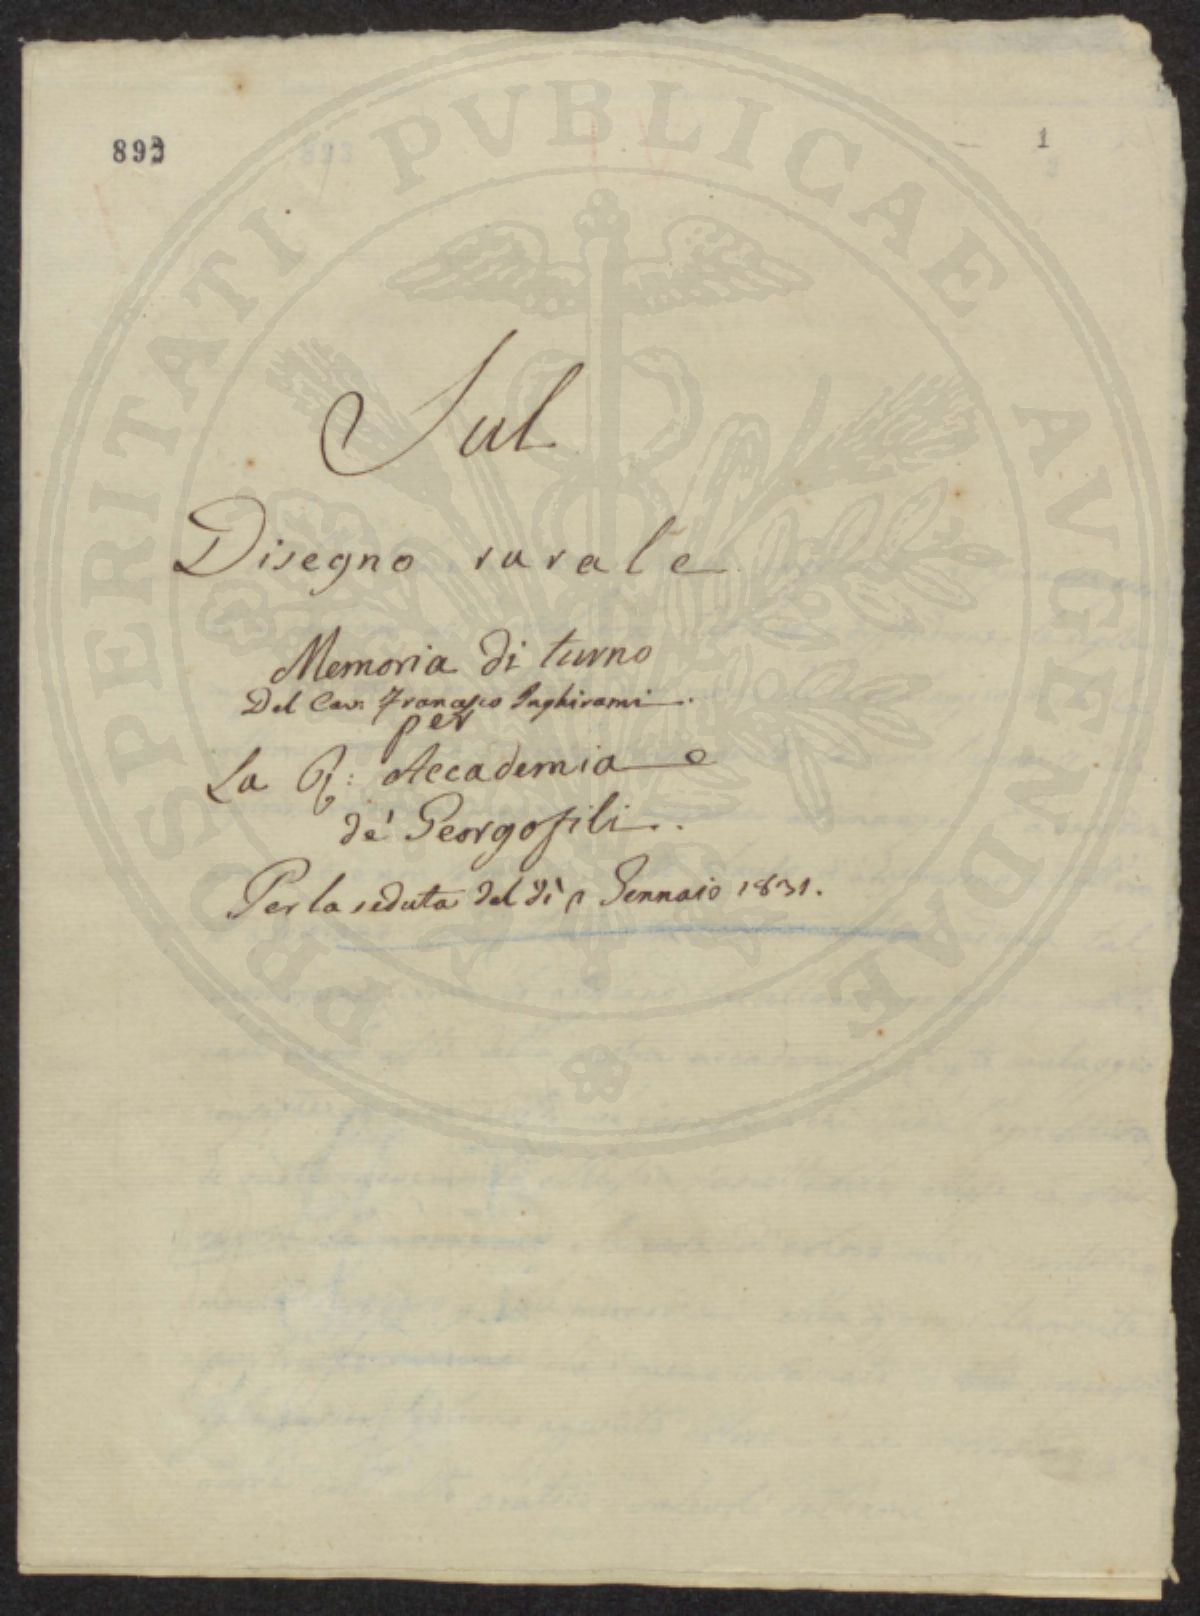 893
1
PROSPERITATI PVBLICAE AVGENDAE
Sul
Disegno rurale
Memoria di turno
Del Cav: Francesco Inghirami.
per
La R: Accademia
de' Georgofili.
Per la seduta del dì Gennaio 1831.